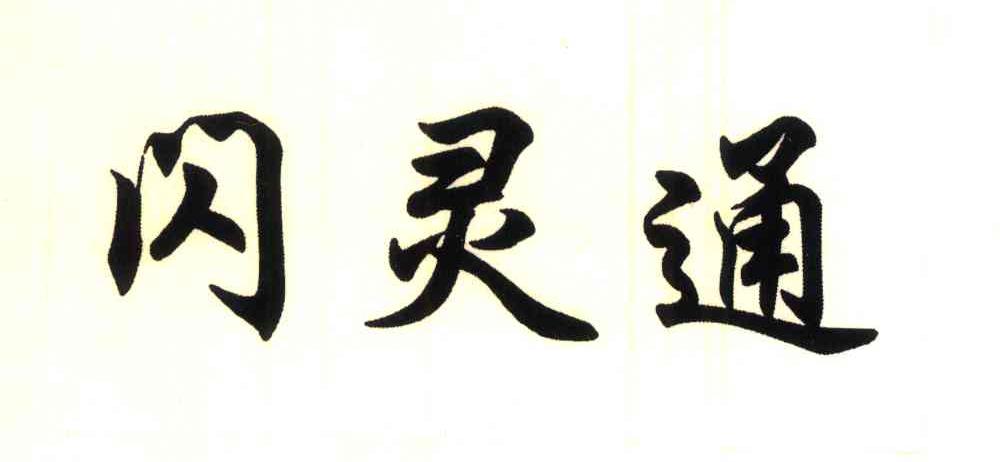 闪灵通